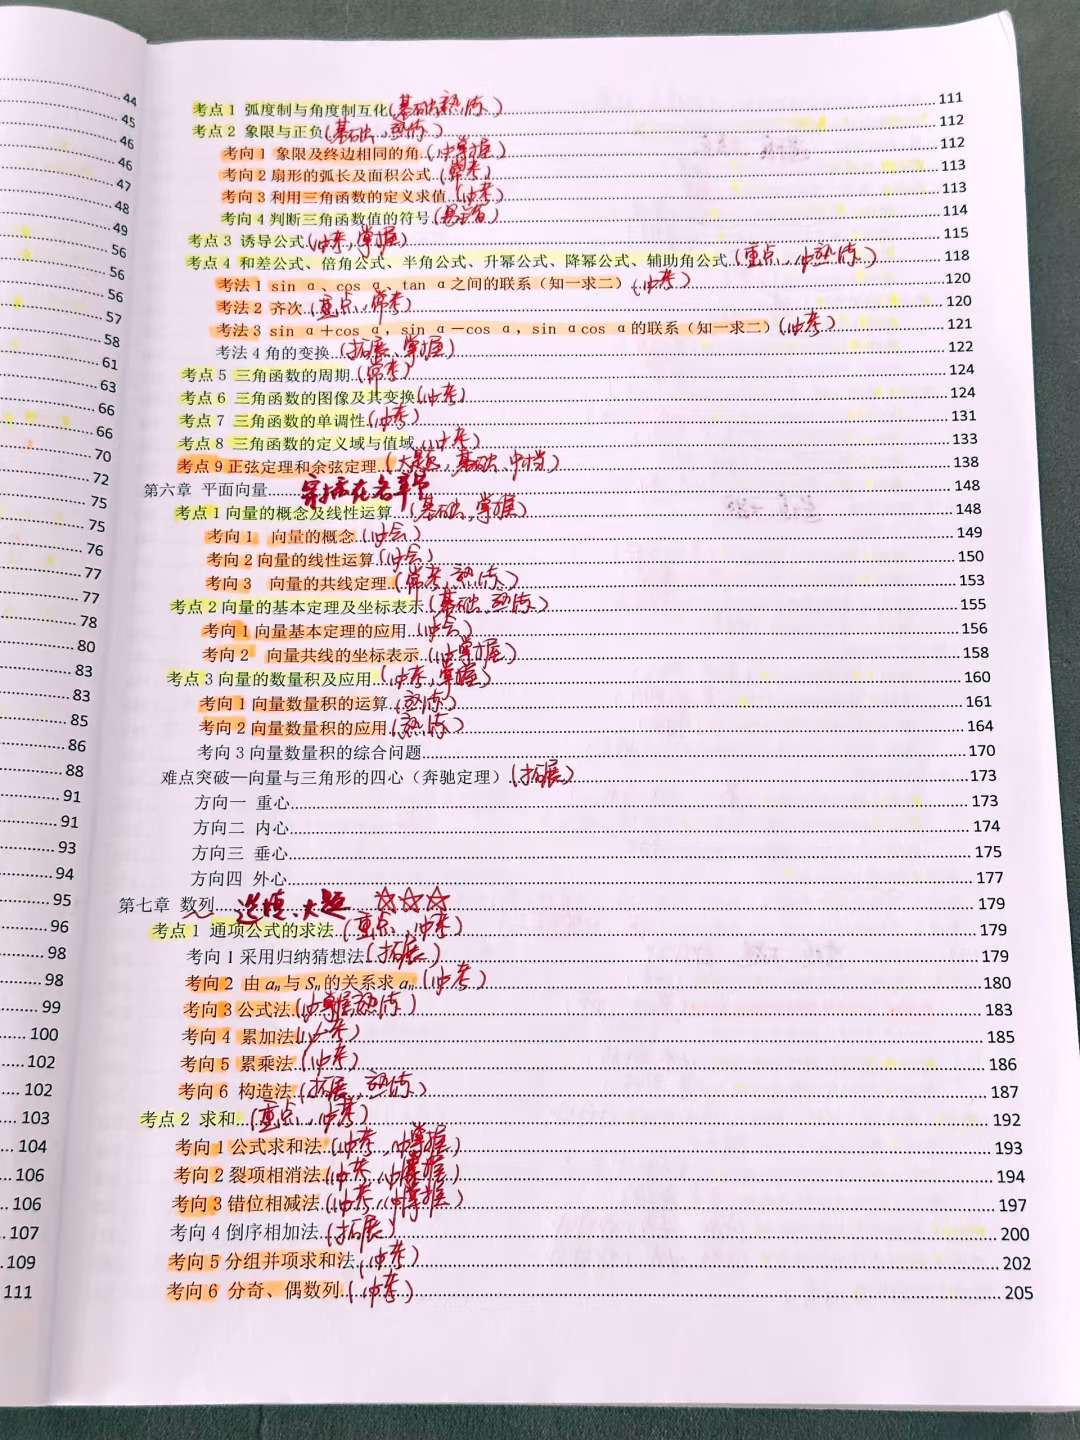 44
45
46
46
47
48
49
56
56
56
57
58
61
63
66
66
70
72
75
75
76
77
77
78
80
83
83
85
86
88
91
91
93
94
95
96
98
98
99
100
102
102
103
104
106
106
107
109
111
考点1 弧度制与角度制互化(基础,熟练) 111
考点2 象限与正负(基础、熟练) 112
考向1 象限及终边相同的角(必掌握) 112
考向2扇形的弧长及面积公式(常考) 113
考向3利用三角函数的定义求值(必考) 113
考向4判断三角函数值的符号 114
考点3 诱导公式(必考,掌握) 115
考点4 和差公式、倍角公式、半角公式、升幂公式、降幂公式、辅助角公式(重点,必熟练) 118
考法1 sin α、cos α、tan α之间的联系(知一求二)(必考) 120
考法2 齐次(重点,常考) 120
考法3 sin α+cos α, sin α-cos α, sin αcos α的联系(知一求二)(必考) 121
考法4角的变换(拓展、掌握) 122
考点5 三角函数的周期(常考) 124
考点6 三角函数的图像及其变换(必考) 124
考点7 三角函数的单调性(必考) 131
考点8 三角函数的定义域与值域(必考) 133
考点9正弦定理和余弦定理(大题,基础,中档) 138
第六章 平面向量 穿插在各章节 148
考点1向量的概念及线性运算(基础,掌握) 148
考向1 向量的概念(必会) 149
考向2向量的线性运算(必会) 150
考向3 向量的共线定理(常考,熟练) 153
考点2向量的基本定理及坐标表示(基础、熟练) 155
考向1向量基本定理的应用(必会) 156
考向2 向量共线的坐标表示(必掌握) 158
考点3向量的数量积及应用(必考,掌握) 160
考向1向量数量积的运算(熟练) 161
考向2向量数量积的应用(熟练) 164
考向3向量数量积的综合问题 170
难点突破—向量与三角形的四心(奔驰定理)(拓展) 173
方向一 重心 173
方向二 内心 174
方向三 垂心 175
方向四 外心 177
第七章 数列 选填、大题 ☆☆☆ 179
考点1 通项公式的求法(重点、必考) 179
考向1采用归纳猜想法(拓展) 179
考向2 由aₙ与Sₙ的关系求aₙ(必考) 180
考向3公式法(必掌握熟练) 183
考向4 累加法(必考) 185
考向5 累乘法(必考) 186
考向6 构造法(拓展,熟练) 187
考点2 求和(重点,必考) 192
考向1公式求和法(必考,必掌握) 193
考向2裂项相消法(必考,必掌握) 194
考向3错位相减法(必考,必掌握) 197
考向4倒序相加法(拓展) 200
考向5分组并项求和法(必考) 202
考向6 分奇、偶数列(必考) 205